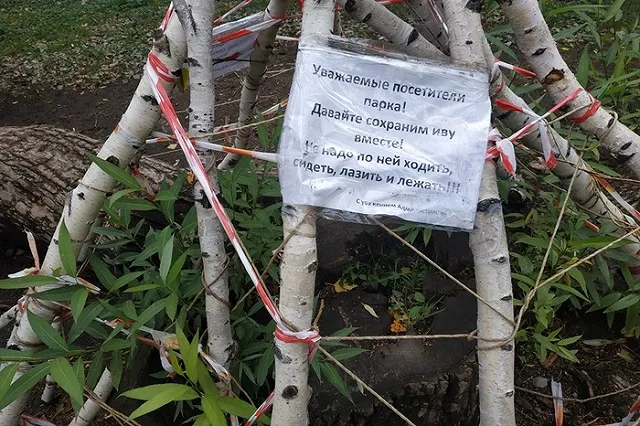 Уважаемые посетители
парка!
Давайте сохраним иву
вместе!
Не надо по ней ходить,
сидеть, лазить и лежать!!!
С уважением